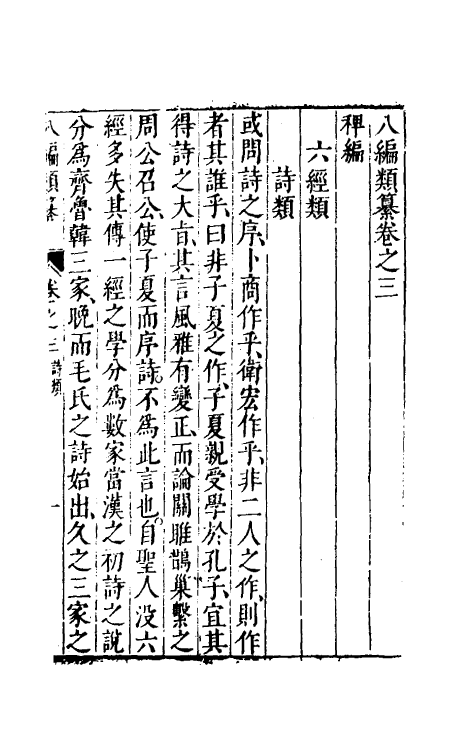 八編類纂卷之三
稗編
六經類
詩類
或問詩之序、卜商作乎、衛宏作乎、非二人之作、則作
者其誰乎、曰非子夏之作、子夏親受學於孔子、宜其
得詩之大旨、其言風雅有變正、而論關雎鵲巢繫之
周公召公、使子夏而序詩、不爲此言也。自聖人没六
經多失其傳一經之學分爲數家當漢之初詩之說
分爲齊魯韓三家、晚而毛氏之詩始出、久之三家之
八編類纂 卷之三 詩類 一